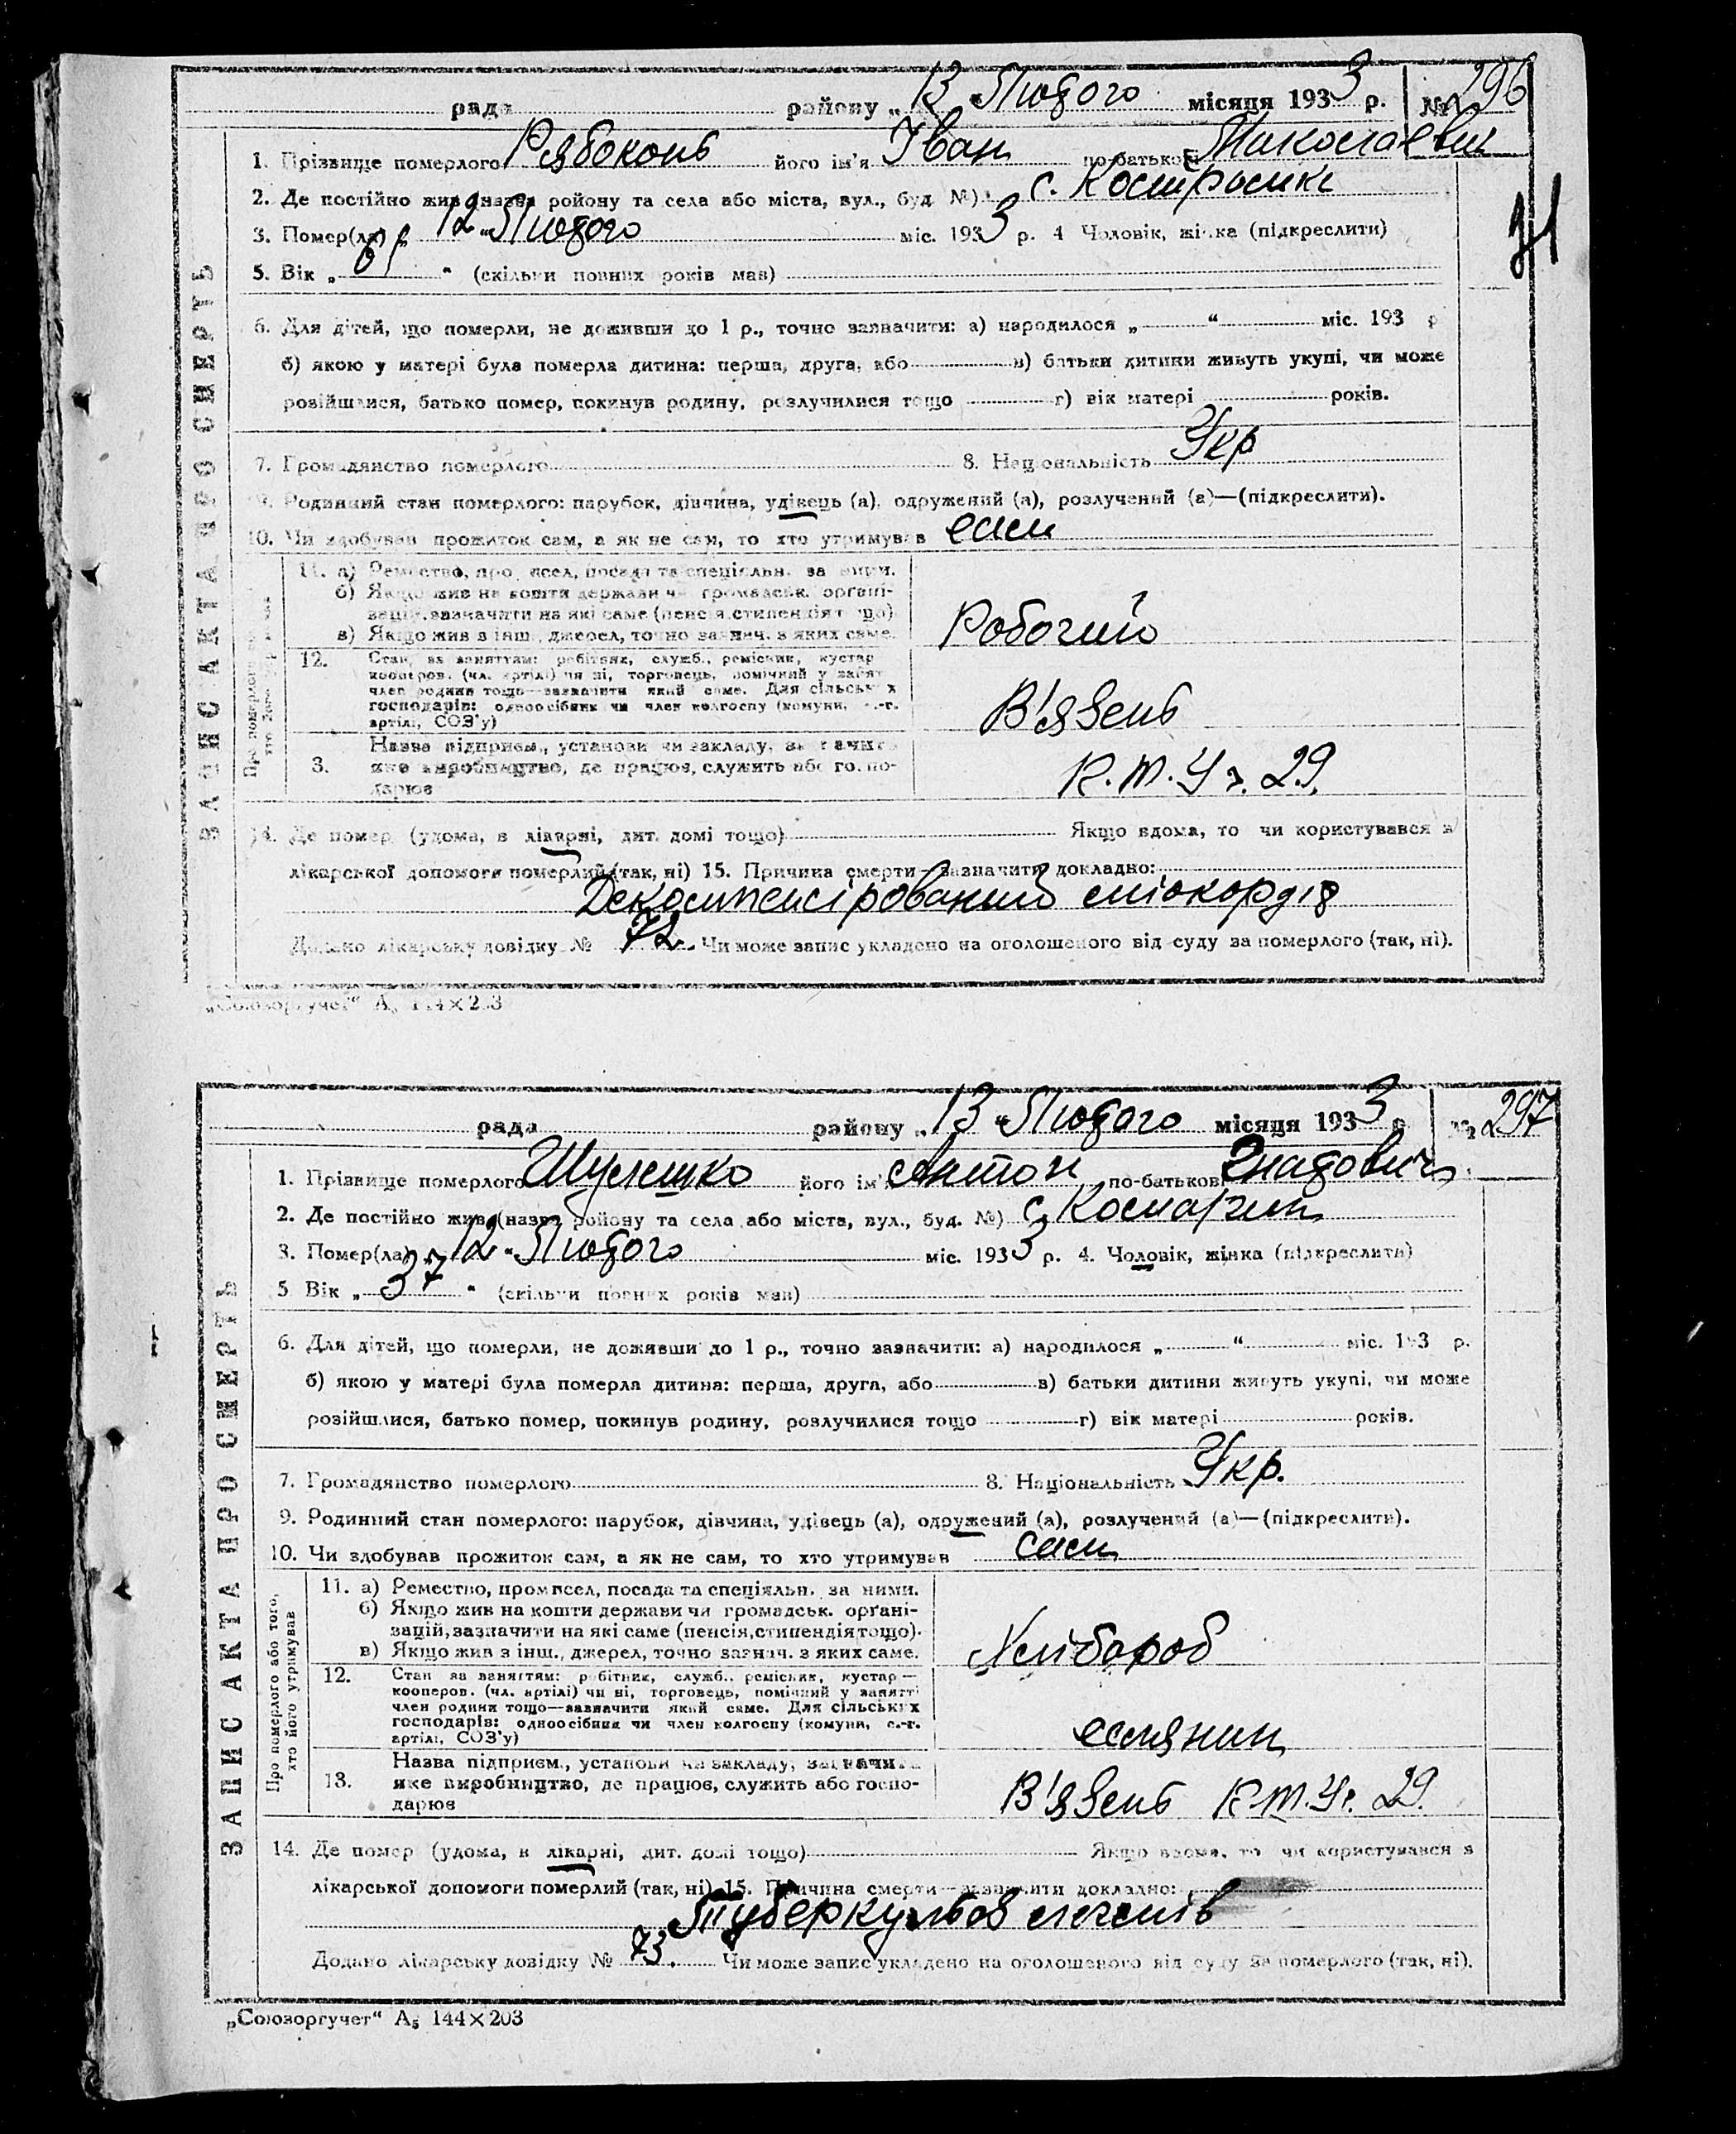 рада району „ 13 “ Лютого місяця 1933 р. № 296
1. Прізвище померлого Рябоконь його ім'я Іван по-батькові Миколаевич
2. Де постійно жив (назва району та села або міста, вул., буд. №) с.
3. Помер(ла) „ 12 “ Лютого міс. 1933 р. 4 Чоловік, жінка (підкреслити)
5. Вік „ “ (скільки повних років мав)
6. Для дітей, що померли, не доживши до 1 р., точно зазначити: а) народилося „ “ міс. 193 р
б) якою у матері була померла дитина: перша, друга, або в) батьки дитини живуть укупі, чи може
розійшлися, батько помер, покинув родину, розлучилися тощо г) вік матері років.
7. Громадянство померлого 8. Національність Укр
9. Родинний стан померлого: парубок, дівчина, удівець (а), одружений (а), розлучений (а)—(підкреслити).
10. Чи здобував прожиток сам, а як не сам, то хто утримував сам
ЗАПИС АКТА ПРО СМЕРТЬ
11. а) Ремество, промисел, посада та спеціяльн. за ними.
б) Якщо жив на кошти держави чи громадськ. орґані-
зацій, зазначити на які саме (пенсія, стипендія тощо)
в) Якщо жив з інш., джерел, точно зазнач. з яких саме.
Робочий
12. Стан за заняттям: робітник, служб., ремісник, кустар
кооперов. (чл. артілі) чи ні, торговець, помічний у занят
член родини тощо—зазначити який саме. Для сільських
господарів: одноосібник чи член колгоспу (комуни, с.-г.
артілі, СОЗ'у)
В'язень
3. Назва підприєм., установи чи закладу, зазначить
яке виробництво, де працює, служить або госпо-
дарює
К.Т.У. 29.
14. Де помер (удома, в лікарні, дит. домі тощо) Якщо вдома, то чи користувався з
лікарської допомоги померлий (так, ні) 15. Причина смерти—зазначити докладно:
Декомпенсірований міокордіз
Додано лікарську довідку № 72. Чи може запис укладено на оголошеного від суду за померлого (так, ні).
„Союзоргучет“ А5 144×203
рада району „ 13 “ Лютого місяця 1933 р. № 297
1. Прізвище померлого Шулешко його ім'я Антон по-батькові Гнатович
2. Де постійно жив (назва району та села або міста, вул., буд. №) с.
3. Помер(ла) „ 12 “ Лютого міс. 1933 р. 4. Чоловік, жінка (підкреслити)
5 Вік „ 37 “ (скільки повних років мав)
6. Для дітей, що померли, не доживши до 1 р., точно зазначити: а) народилося „ “ міс. 193 р.
б) якою у матері була померла дитина: перша, друга, або в) батьки дитини живуть укупі, чи може
розійшлися, батько помер, покинув родину, розлучилися тощо г) вік матері років.
7. Громадянство померлого 8. Національність Укр.
9. Родинний стан померлого: парубок, дівчина, удівець (а), одружений (а), розлучений (а)—(підкреслити).
10. Чи здобував прожиток сам, а як не сам, то хто утримував сам
ЗАПИС АКТА ПРО СМЕРТЬ
Про померлого або того,
хто його утримував
11. а) Ремество, промисел, посада та спеціяльн. за ними.
б) Якщо жив на кошти держави чи громадськ. орґані-
зацій, зазначити на які саме (пенсія, стипендія тощо).
в) Якщо жив з інш., джерел, точно зазнач. з яких саме.
Хлібороб
12. Стан за заняттям: робітник, служб., ремісник, кустар—
кооперов. (чл. артілі) чи ні, торговець, помічний у занятті
член родини тощо—зазначити який саме. Для сільських
господарів: одноосібник чи член колгоспу (комуни, с.-г.
артілі, СОЗ'у)
селянин
13. Назва підприєм., установи чи закладу, зазначить
яке виробництво, де працює, служить або госпо-
дарює
В'язень К.Т.У. 29.
14. Де помер (удома, в лікарні, дит. домі тощо) Якщо вдома, то чи користувався з
лікарської допомоги померлий (так, ні) 15. Причина смерти—зазначити докладно:
Туберкульоз легенів
Додано лікарську довідку № 73. Чи може запис укладено на оголошеного від суду за померлого (так, ні).
„Союзоргучет“ А5 144×203